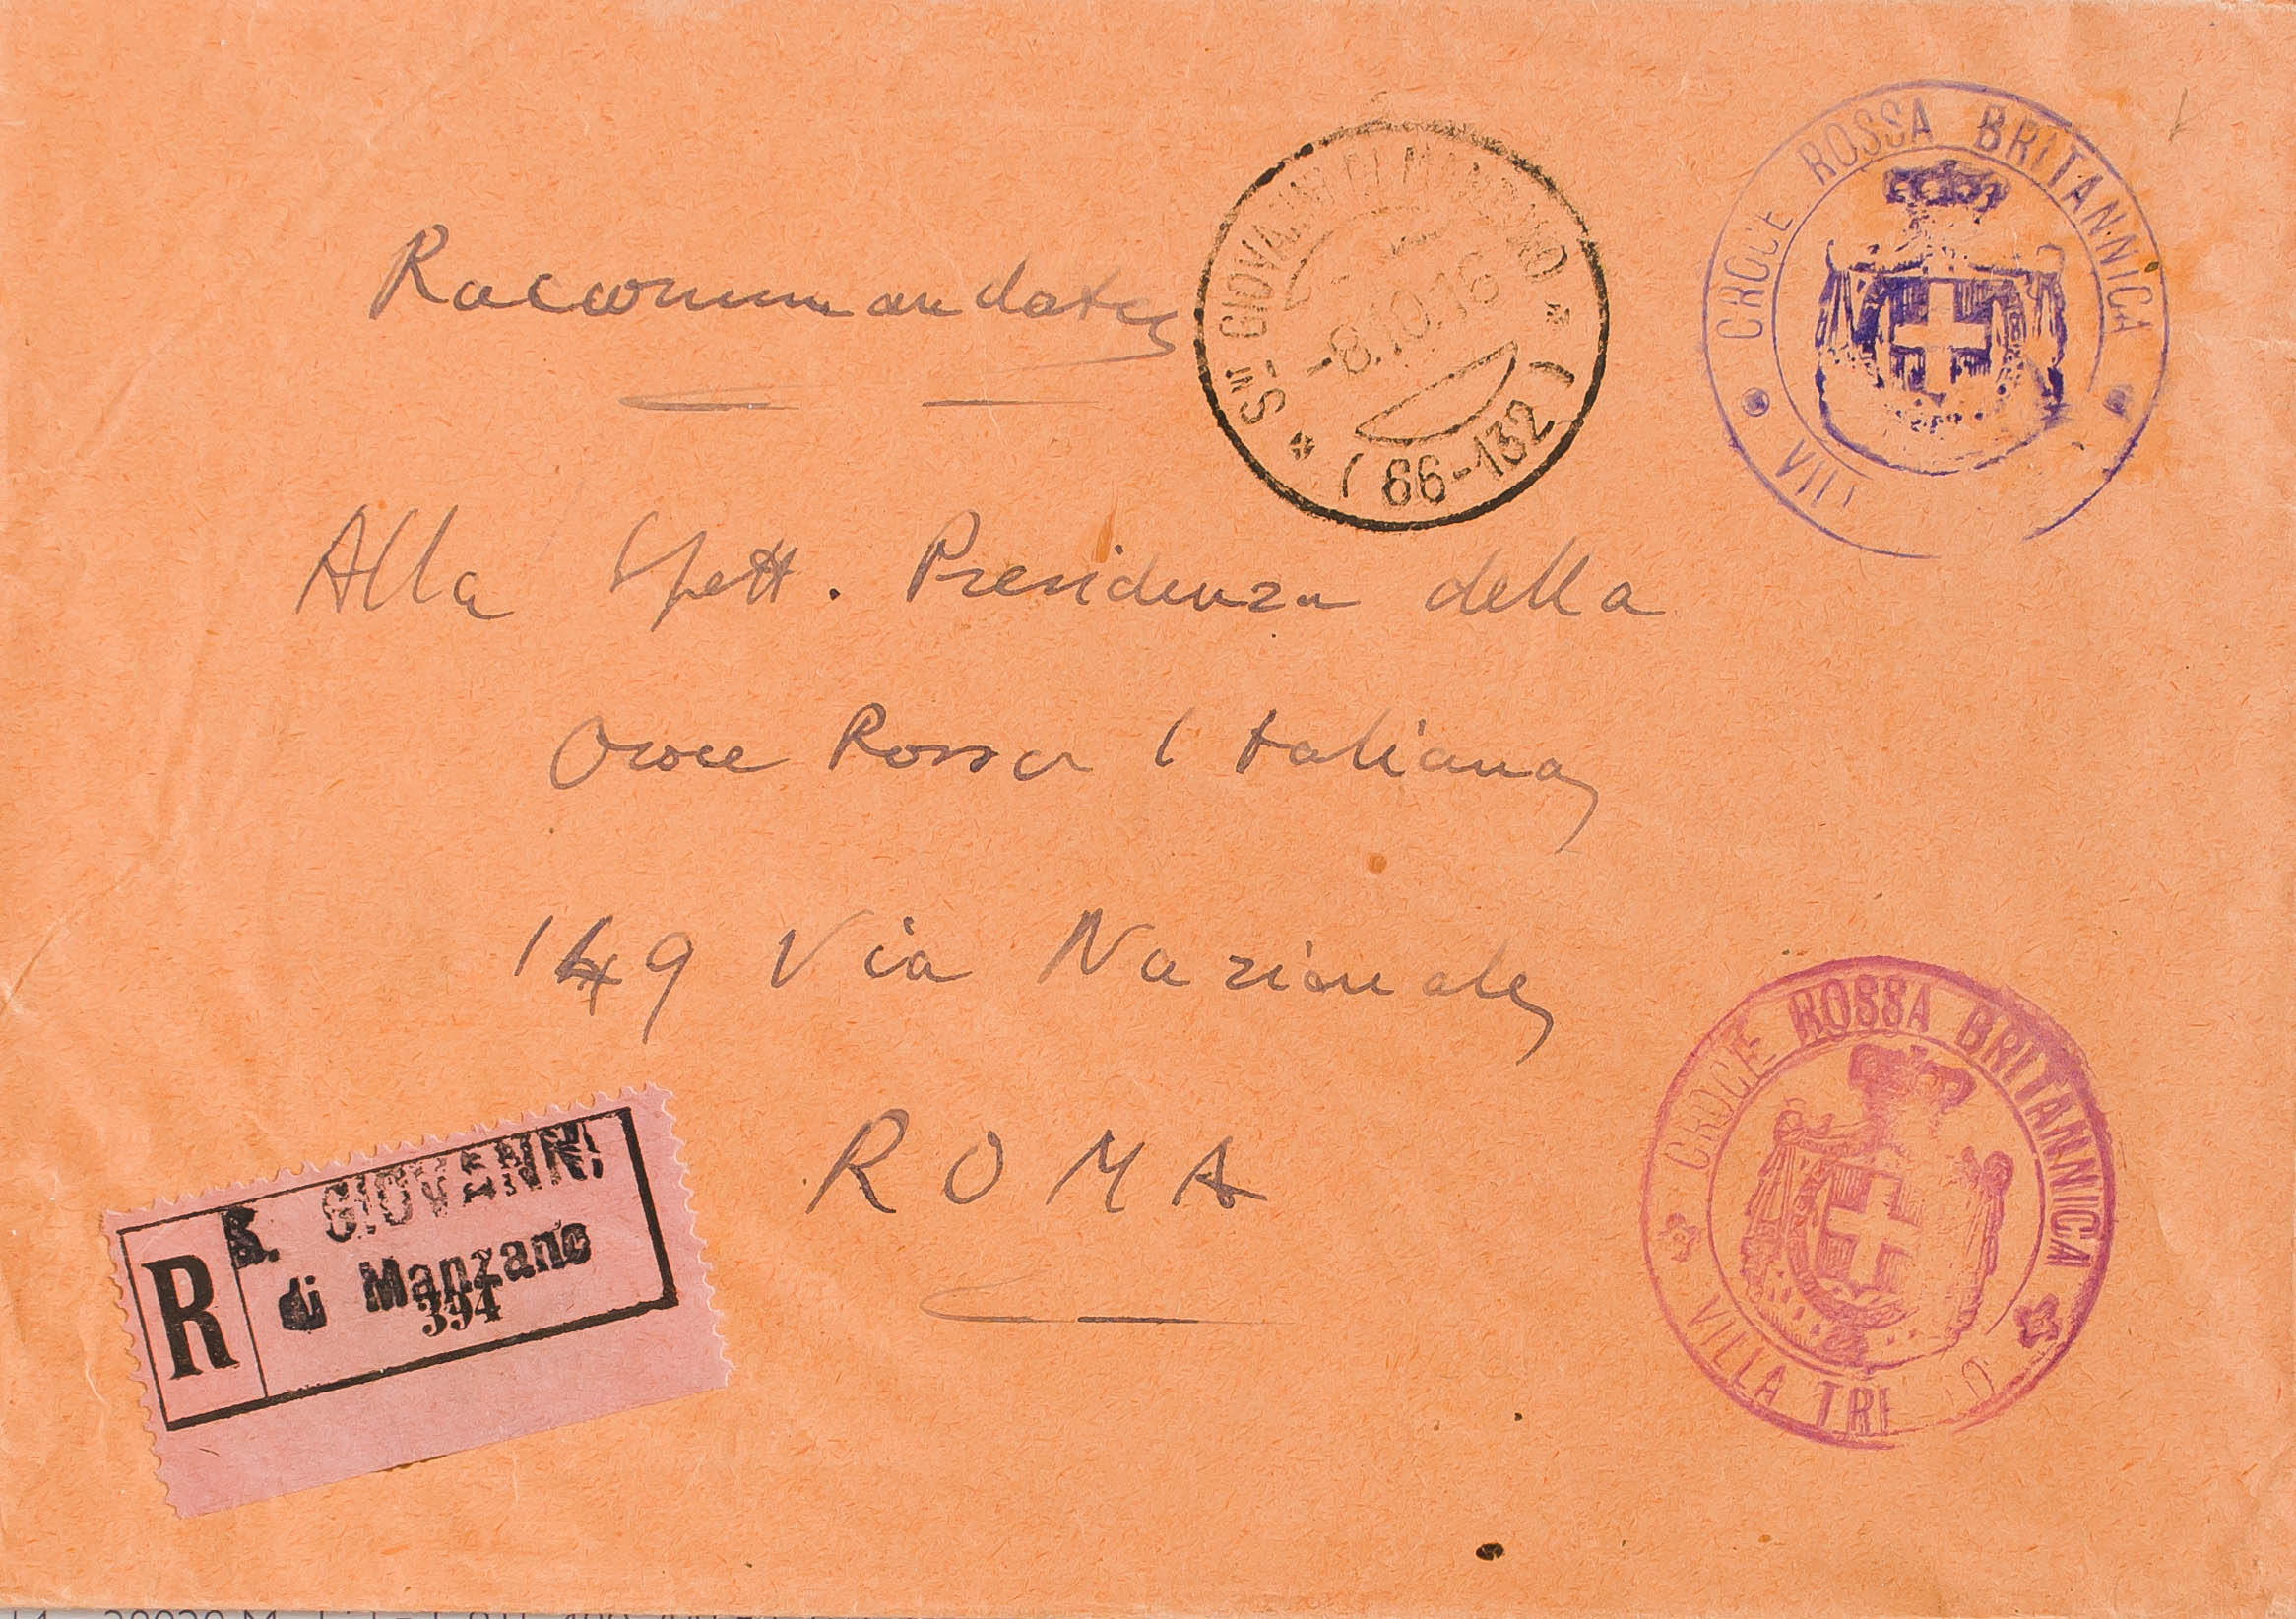 Raccommandata
S. GIOVANNI DI MANZANO
-8.10.16
(66-132)
CROCE ROSSA BRITANNICA
Alla Spett. Presidenza della
Croce Rossa Italiana
149 Via Nazionale
ROMA
R
S. GIOVANNI
di Manzano
394
CROCE ROSSA BRITANNICA
VILLA